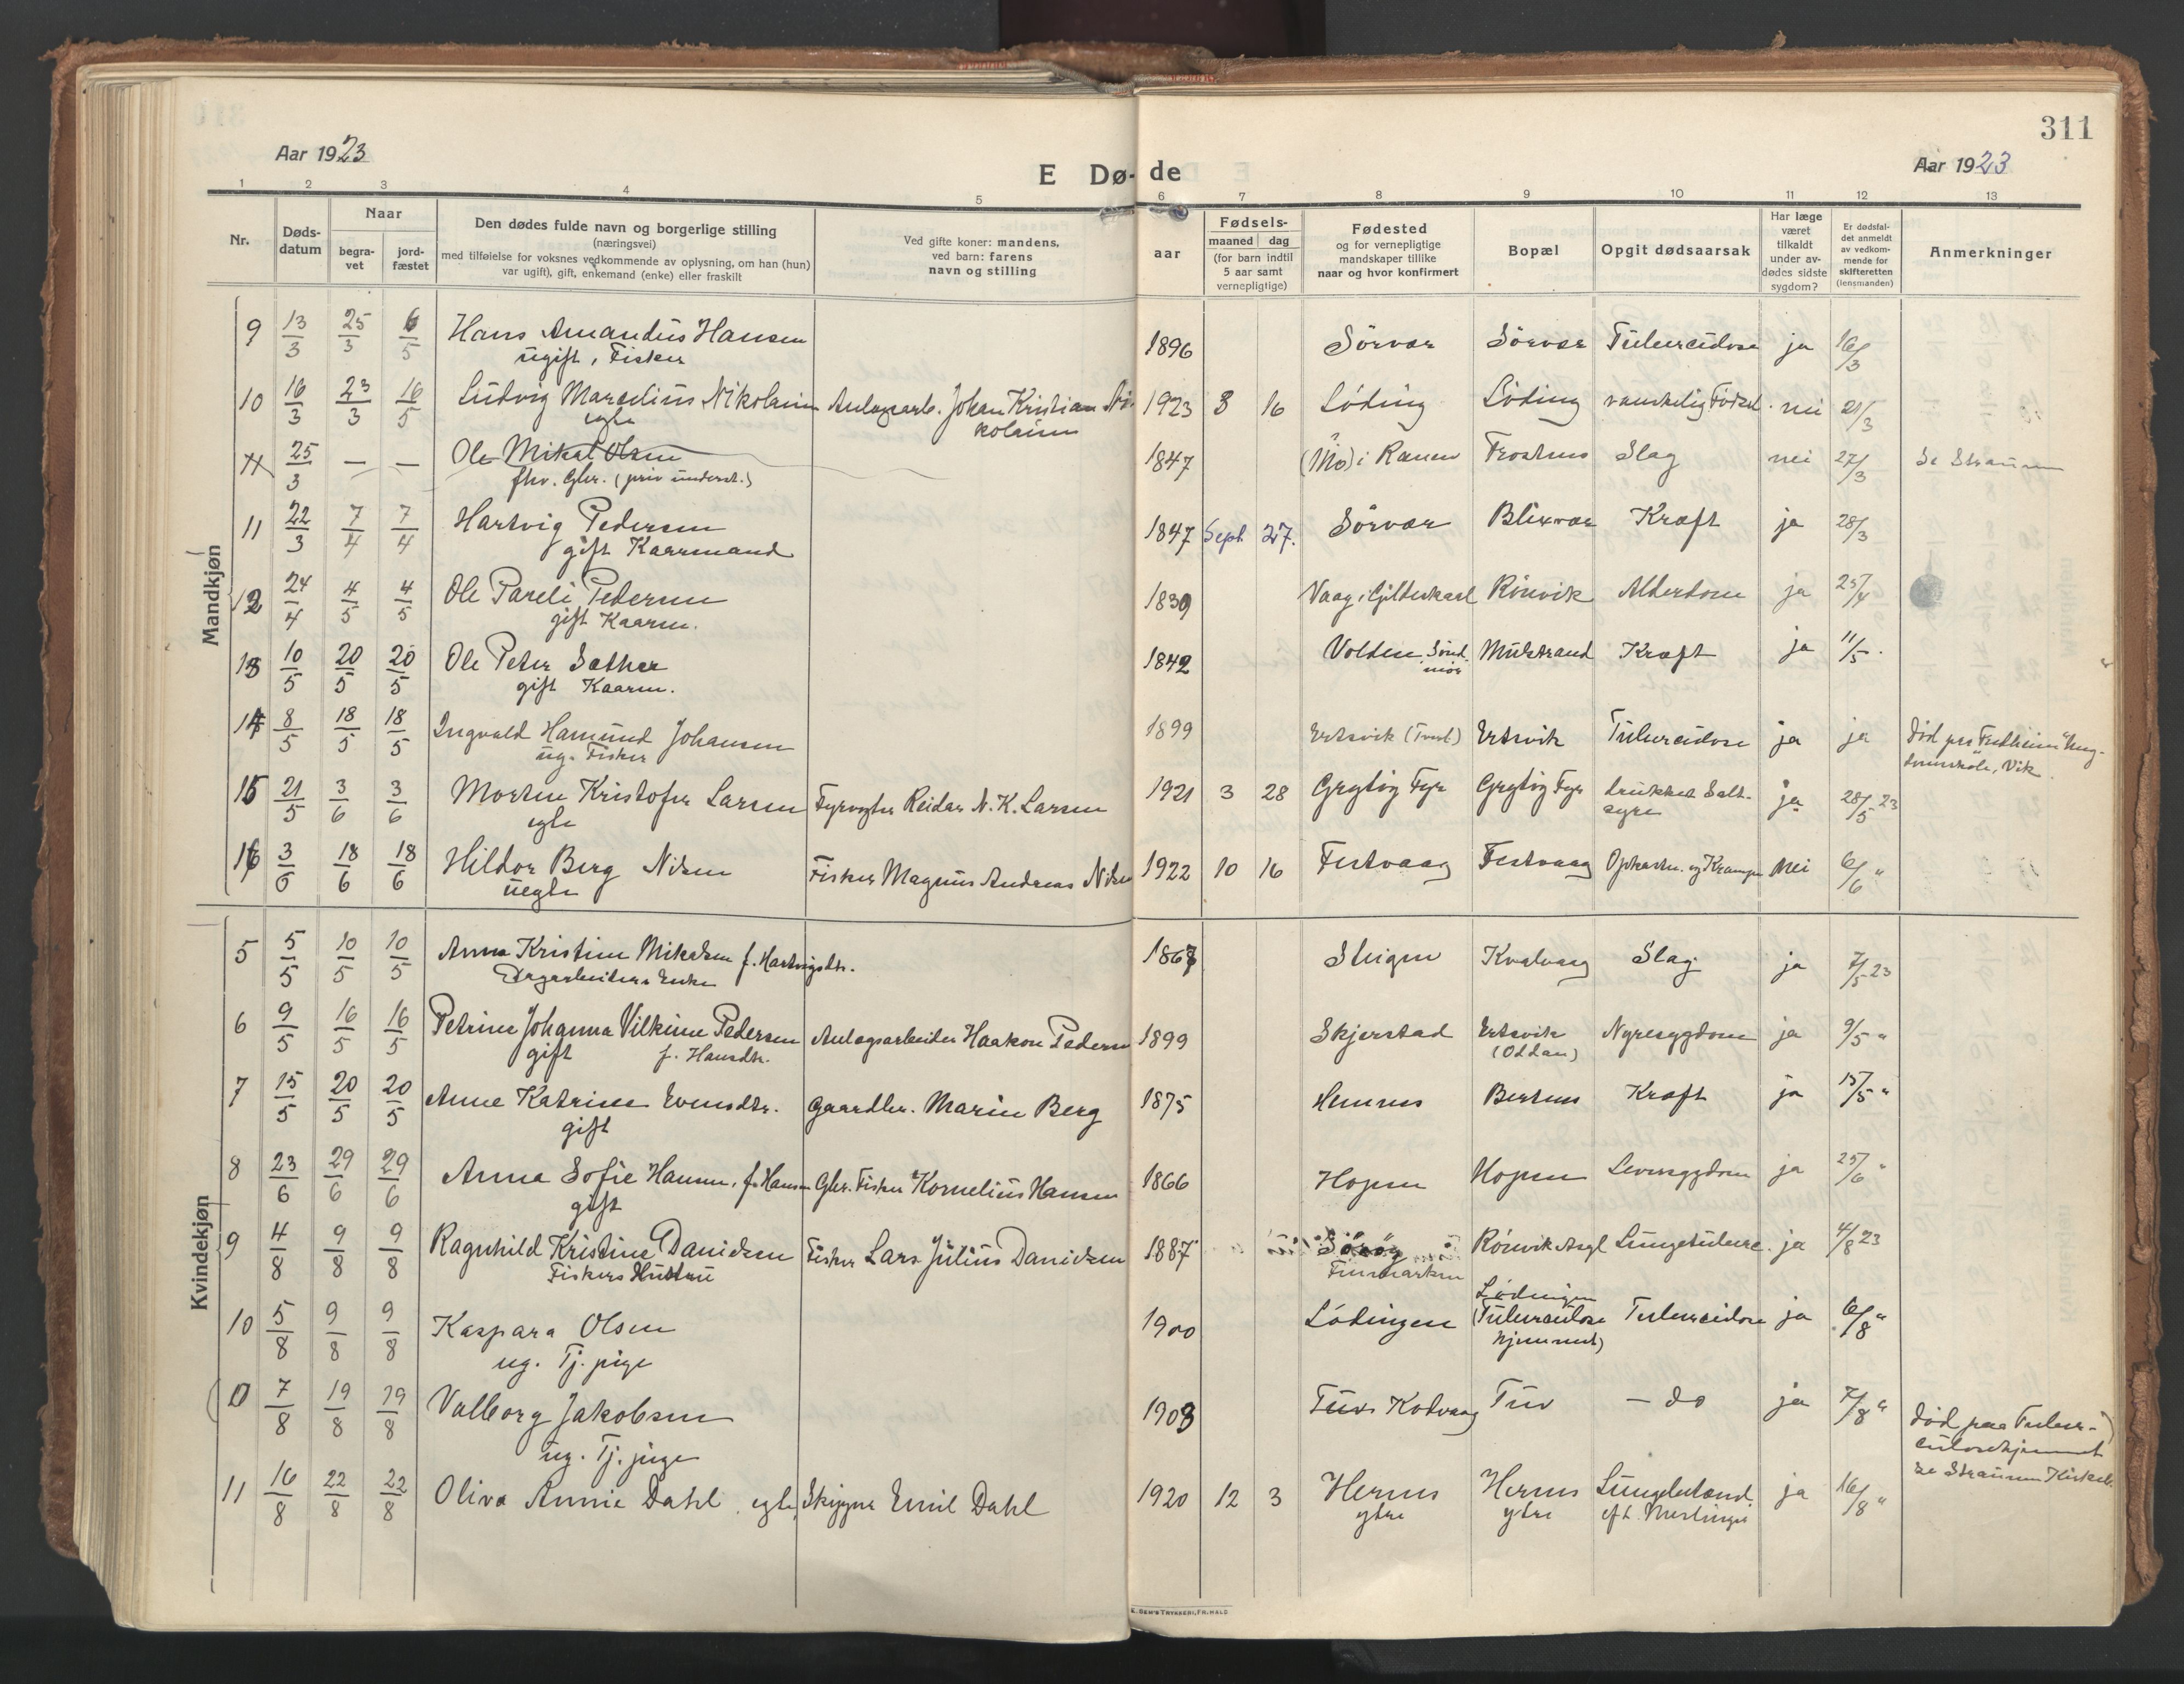 311
Aar 1923
E Dø-de
Aar 1923
1 2 3 4 5 6 7 8 9 10 11 12 13
Nr.
Døds-
datum
Naar
begra-
vet
jord-
fæstet
Den dødes fulde navn og borgerlige stilling
(næringsvei)
med tilføielse for voksnes vedkommende av oplysning, om han (hun)
var ugift), gift, enkemand (enke) eller fraskilt
Ved gifte koner: mandens,
ved barn: farens
navn og stilling
aar
Fødsels-
maaned dag
(for barn indtil
5 aar samt
vernepligtige)
Fødested
og for vernepligtige
mandskaper tillike
naar og hvor konfirmert
Bopæl
Opgit dødsaarsak
Har læge
været
tilkaldt
under av-
dødes sidste
sygdom?
Er dødsfal-
det anmeldt
av vedkom-
mende for
skifteretten
(lensmanden)
Anmerkninger
Mandkjøn
9 13/3 25/3 6/5 Hans Amandus Hansen 1896 Sörvær Sörvær Tuberculose ja 16/3
ugift, Fisker
10 16/3 23/3 16/5 Ludvig Marselius Nikolaisen Anlægsarb. Johan Kristian Ni- 1923 3 16 Löding Löding vanskelig Födsel nei 21/3
egte kolaisen
11 25/3 — — Ole Mikal Olsen 1847 (Mo) i Ranen Trostnes Slag nei 27/3 Se Straumen
fhv. Gbr. (priv underst.)
11 22/3 7/4 7/4 Hartvig Pedersen 1847 Sept 27. Sörvær Blixvær Kræft ja 28/3
gift Kaarmand
12 24/4 4/5 4/5 Ole Pareli Pedersen 1839 Vaag i Gildeskaal Rönvik Alderdom ja 25/4
gift Kaarm.
13 10/5 20/5 20/5 Ole Peter Sather 1842 Volden Sönd- Mulstrand Kræft ja 11/5.
gift Kaarm. mör
14 8/5 18/5 18/5 Ingvald Hamund Johansen 1899 Ertsvik (Tverl.) Ertsvik Tuberculose ja ja Död paa "Fredheim" Ung-
ug. Fisker domsskole, Vik.
15 21/5 3/6 3/6 Morten Kristofer Larsen Fyrvogter Reidar N. K. Larsen 1921 3 28 Grytöy Fyr Grytöy Fyr drukket Salt- ja 28/5 23
egte syre
16 3/6 18/6 18/6 Hildor Berg Nilsen Fisker Magnus Andreas Nilsen 1922 10 16 Festvaag Festvaag Opkastn. og Krampe Nei 6/6 "
uegte
Kvindekjøn
5 5/5 10/5 10/5 Anna Kristine Mikalsen f. Hartvigsdtr. 1867 Steigen Kvalvaag Slag ja 7/5 23
Dagarbeiders Enke
6 9/5 16/5 16/5 Petrine Johanna Vilkine Pedersen Anlægsarbeider Haakon Pedersen 1899 Skjerstad Ertsvik Nyresygdom ja 9/5 "
gift f. Hansdtr. (Oddan)
7 15/5 20/5 20/5 Anne Katrine Evensdtr. Gaardbr. Marin Berg 1875 Hemnes Bertnes Kræft ja 15/5 "
gift
8 23/6 29/6 29/6 Anna Sofie Hansen, f. Hansen Gbr. Fisker Kornelius Hansen 1866 Hopen Hopen Leversygdom ja 25/6 "
gift
9 4/8 9/8 9/8 Ragnhild Kristine Danielsen Fisker Lars Julius Danielsen 1887 Söröy Rönvik Asyl Lungetuberc. ja 4/8 23
Fiskers Hustru Finmarken
10 5/8 9/8 9/8 Kaspara Olsen 1900 Lödingen Lödingen (Tuberculose Tuberculose ja 6/8 "
ug. Tj. pige hjemmet)
7/8 19/8 19/8 Valborg Jakobsen 1903 Tuv Kodvaag Tuv — do ja 7/8 " Död paa Tuber-
ug. Tj. pige culosehjemmet
se Straumen Kirkeb.
11 16/8 22/8 22/8 Oliva Annie Dahl. egte, Skipper Emil Dahl 1920 12 3 Hernes Hernes Lungebetænd. ja 16/8 "
ytre ytre eft. Meslinger
E. SEM'S TRYKKERI, FR.HALD